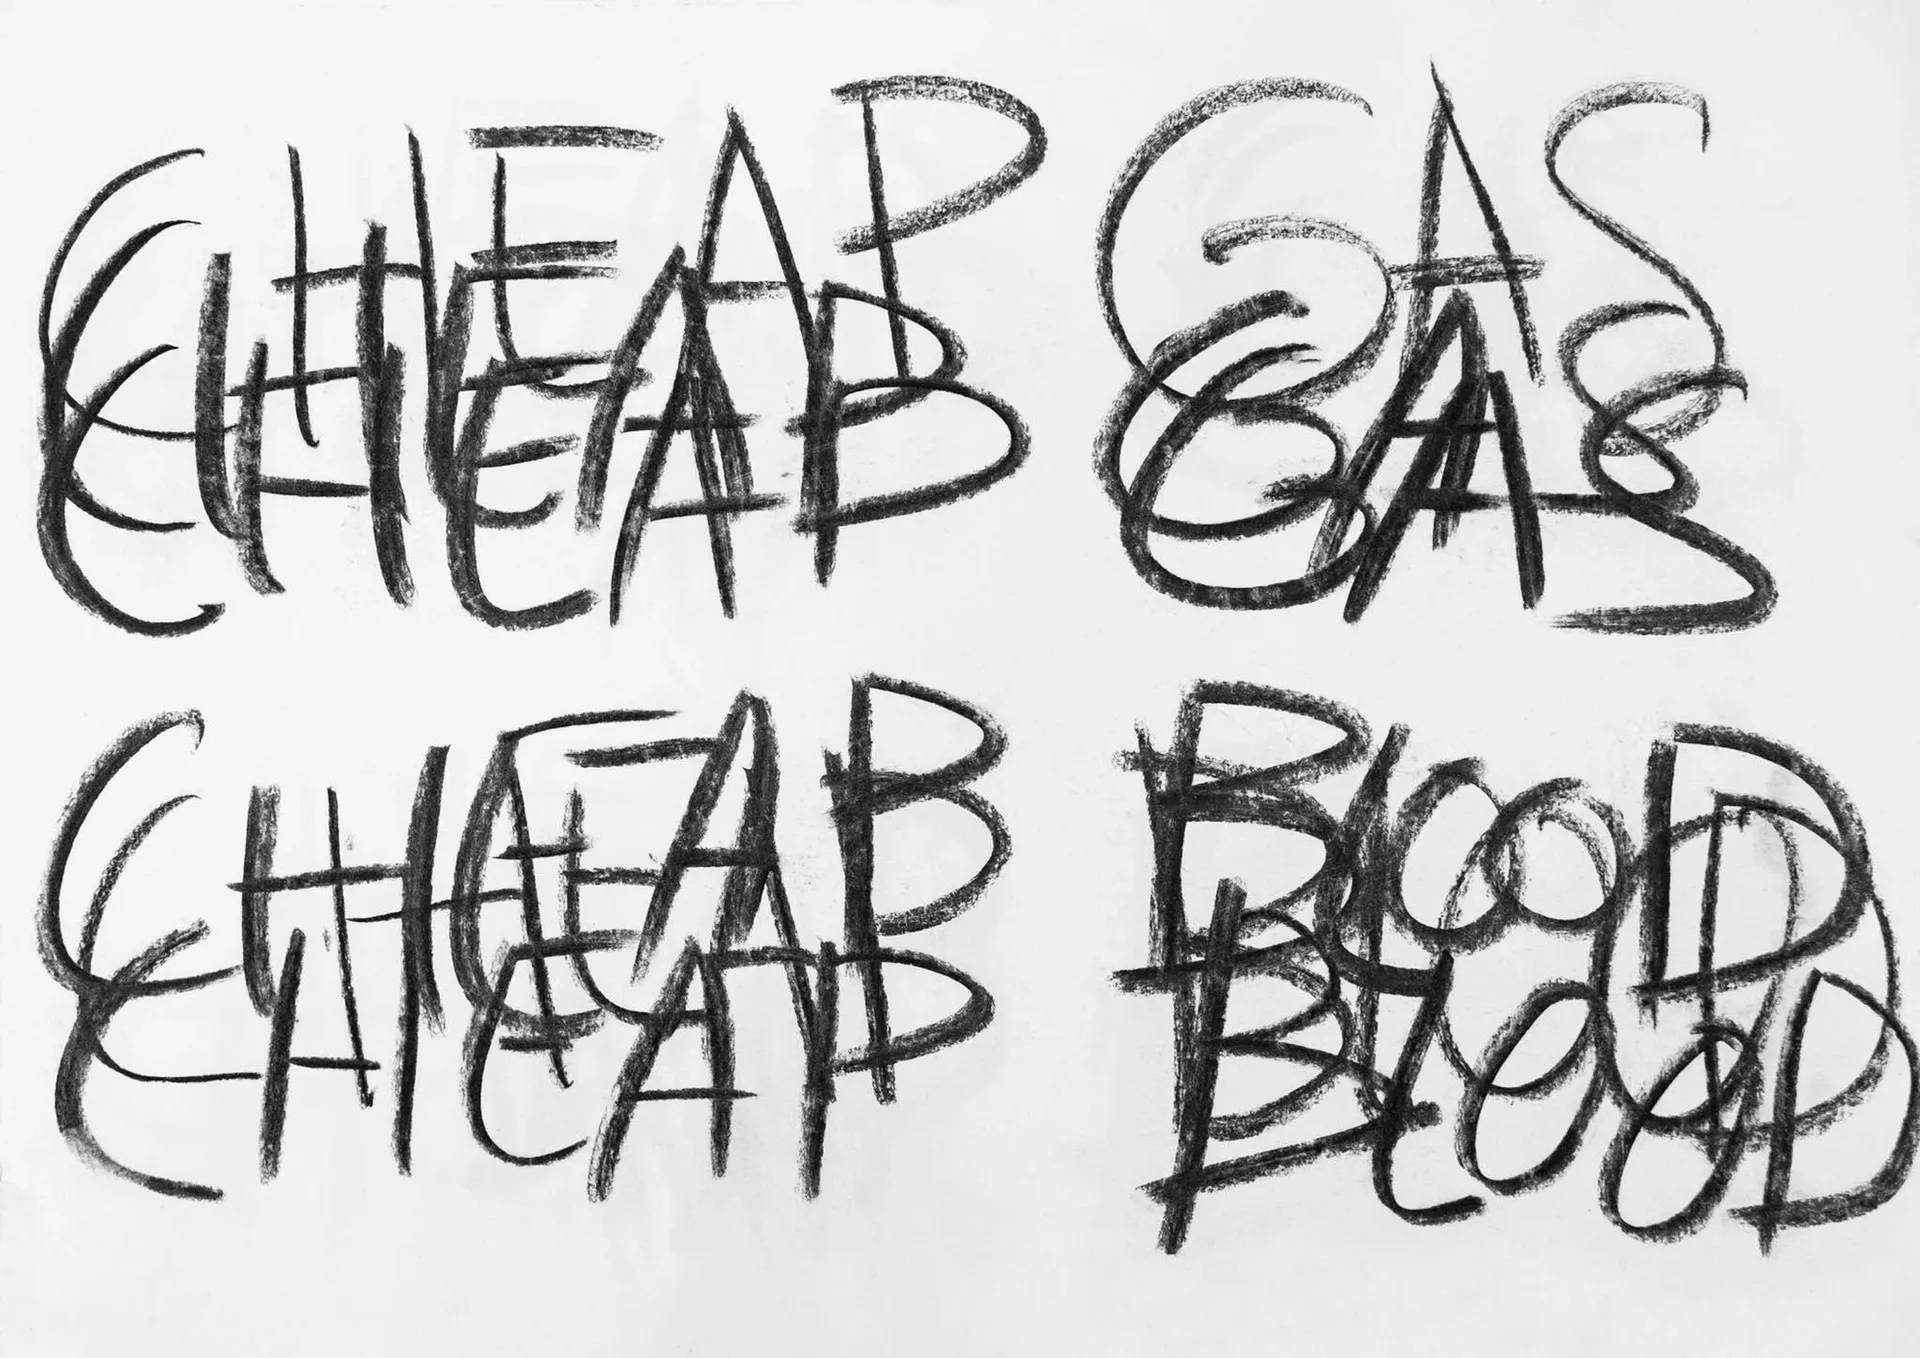 CHEAP GAS
CHEAP GAS
CHEAP GAS
CHEAP BLOOD
CHEAP BLOOD
CHEAP BLOOD